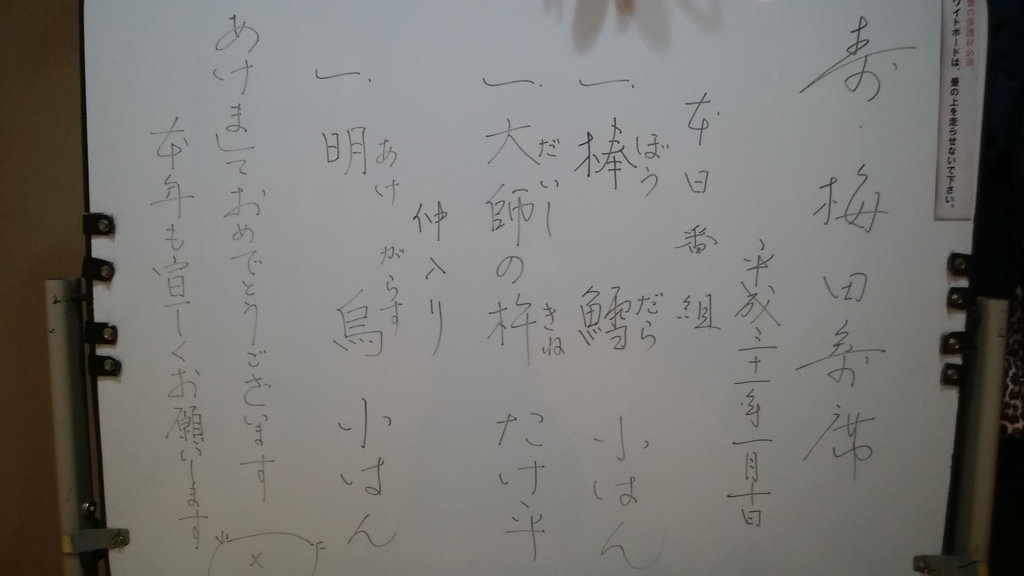 畳の保護材必須。
ワイトボードは、畳の上を走らせないで下さい。
寿・梅田寄席
平成三十一年一月十日
本日番組
一、棒鱈 小はん
ぼう だら
一、大師の杵 たけ平
だいし きね
仲入り
一、明烏 小はん
あけ がらす
あけましておめでとうございます
本年も宜しくお願いします